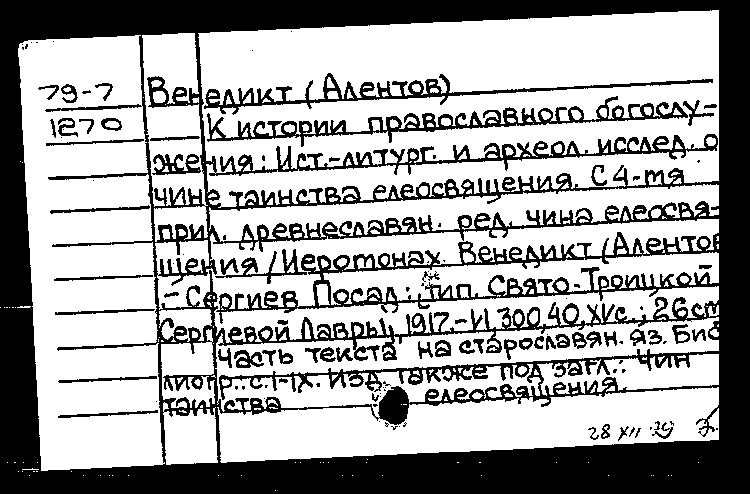 79-7 Венедикт (Алентов)
1270 К истории православного богослу-
жения: Ист.-литург. и археол. исслед. о
чине таинства елеосвящения. С 4-мя
прил. древнеславян. ред. чина елеосвя-
щения / Иеромонах Венедикт (Алентов
.- Сергиев Посад: тип. Свято-Троицкой
Сергиевой Лавры, 1917.-VI, 300, 40, XVс.; 26см
Часть текста на старославян. яз. Биб
лиогр.: с. I-IX. Изд. также под загл.: Чин
таинства елеосвящения.
28 XII 79